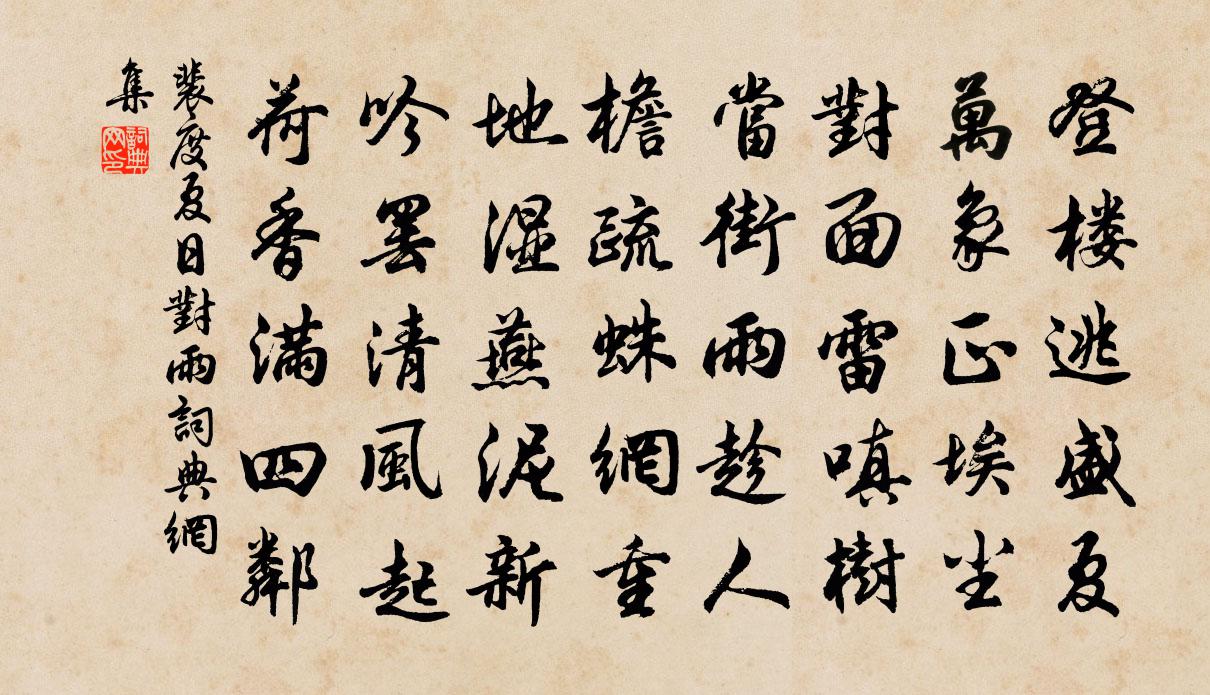 登楼逃盛夏
萬象正埃尘
對面雷嗔樹
當街雨趁人
檐疏蛛網重
地湿燕泥新
吟罢清風起
荷香滿四鄰
裴度夏日對雨詞典網
集
詞典网印